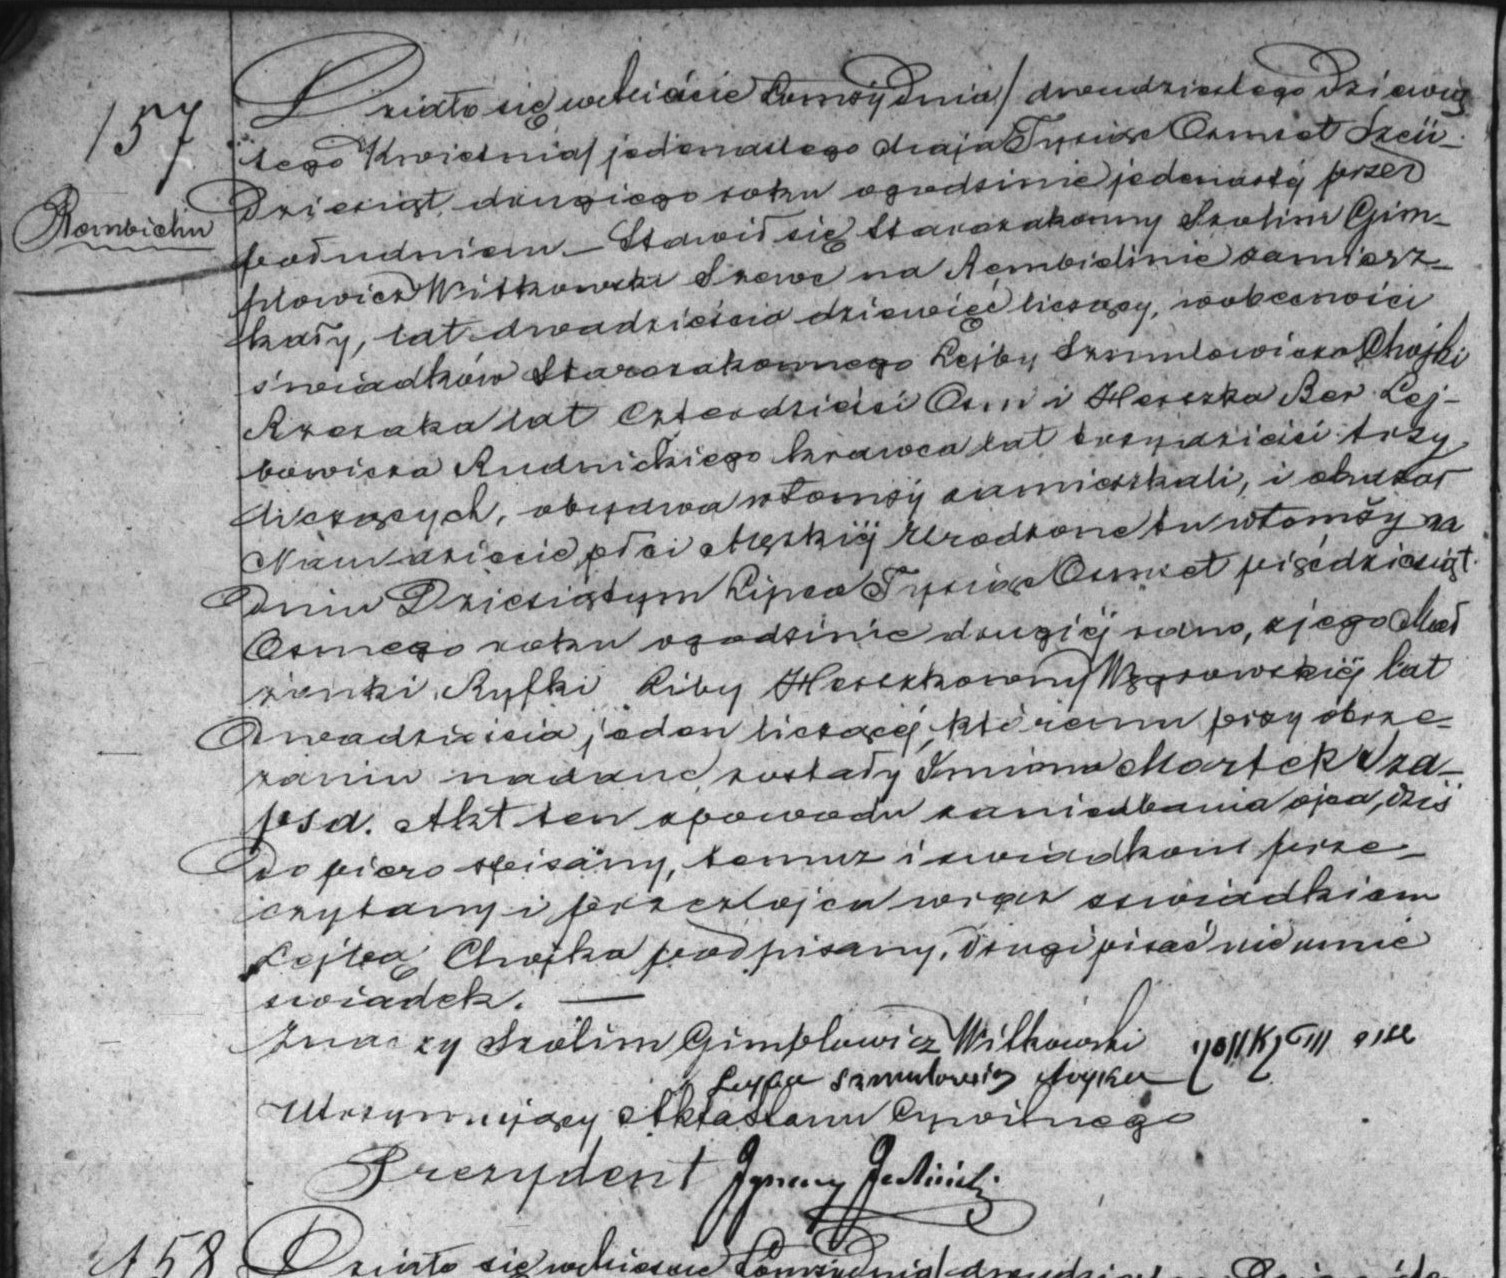 157
Rembielin
Działo się w Mieście Łomży Dnia / dwudziestego Dziewią
tego Kwietnia / jedenastego Maja Tysiąc Ośmset Sześć-
Dziesiąt drugiego roku o godzinie jedenastej przed
południem – Stawił się Starozakonny Szolim Gim-
plowicz Witkowski Szewc na Rembielinie zamiesz-
kały, lat dwadzieścia dziewięć liczący, w obecności
świadków Starozakonnego Lejby Szmulowicza Chojki
Rzezaka lat Czterdzieści Ośm i Herszka Ber Lej-
bowicza Rudnickiego krawca lat trzydzieści trzy
liczących, obydwa w Łomży zamieszkali, i okazał
Nam dziecie płci Męzkiéj Urodzone tu w Łomży na
Dniu Dziesiątym Lipca Tysiąc Ośmset pięćdziesiąt
Osmego roku o godzinie drugiéj rano, z jego Mał
żonki Ryfki Liby Herszkowny Wąsowskiéj lat
Dwadzieścia jeden liczącéj, któremu przy obrze-
zaniu nadane zostały Imiona Mortek Sza-
psa. Akt ten z powodu zaniedbania ojca, dziś
Dopiero spisany, temuz i swiadkom prze-
czytany i przez Ojca wraz z swiadkiem
Lejbą Chojka podpisany, drugi pisać nie umie
swiadek. —
Znaczy Szolim Gimplowicz Witkowski
Leyba Szmulowicz Hoyka
Utrzymujący Akta Stanu Cywilnego
Prezydent
158
Działo się w Mieście Łomży Dnia /